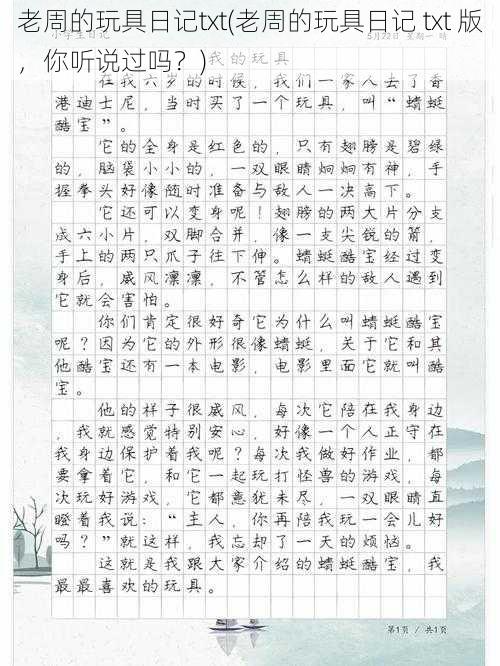 老周的玩具日记txt(老周的玩具日记 txt 版
，你听说过吗？)
小学生日记
5月22日 星期一 晴
我的玩具
在我六岁的时候，我们一家人去了香
港迪士尼，当时买了一个玩具，叫“蜻蜓
酷宝”。
它的全身是红色的，只有翅膀是碧绿
的，脑袋小小的，一双眼睛炯炯有神，手
握拳头好像随时准备与敌人一决高下。
它还可以变身呢！翅膀的两大片分支
成六小片，双脚合并，像一支尖锐的箭，
手上的两只爪子往下伸。蜻蜓酷宝经过变
身后，威风凛凛，不管怎么样的敌人遇到
它就会害怕。
你们肯定很好奇它为什么叫蜻蜓酷宝
呢？因为它的外形很像蜻蜓，关于它和其
他酷宝还有一本电影，电影里面它就叫酷
宝。
他的样子很威风，每次它陪在我身边
，我就感觉特别安心，好像一个人正守在
我身边保护着我呢？每次我做好作业，都
要拿着它，和它一起玩打怪兽的游戏，每
次玩好游戏，它都意犹未尽，一双眼睛直
瞪着我说：“主人，你再陪我玩一会儿好
吗？”就这样，我忘却了一天的烦恼。
这就是我跟大家介绍的蜻蜓酷宝，我
最最喜欢的玩具。
第1页 / 共1页